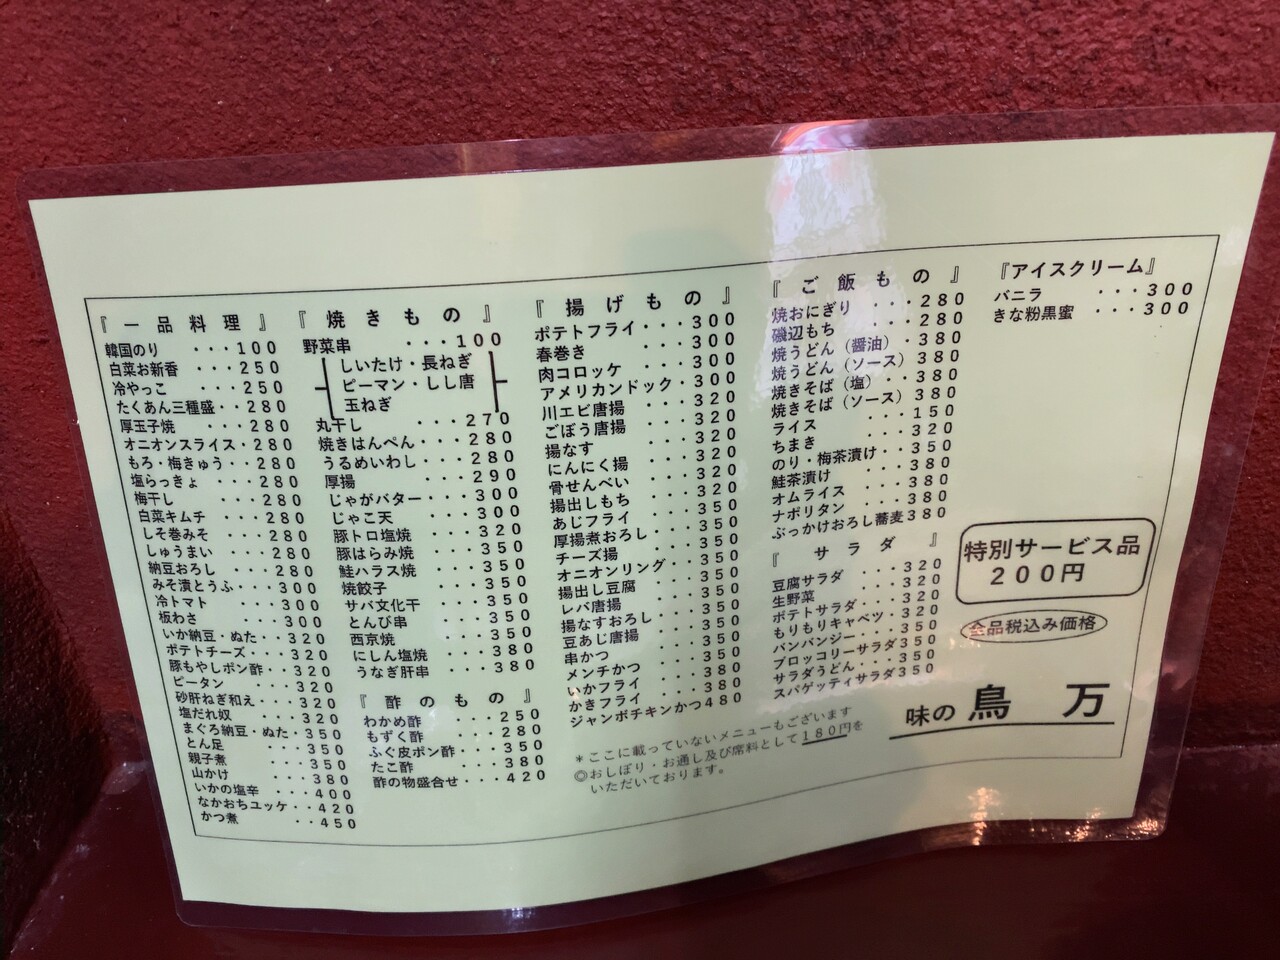 『一品料理』
韓国のり ・・・100
白菜お新香 ・・・250
冷やっこ ・・・250
たくあん三種盛・・280
厚玉子焼 ・・・280
オニオンスライス・280
もろ・梅きゅう・・280
塩らっきょ ・・・280
梅干し ・・・280
白菜キムチ ・・・280
しそ巻みそ ・・・280
しゅうまい ・・・280
納豆おろし ・・・280
みそ漬とうふ・・・300
冷トマト ・・・300
板わさ ・・・300
いか納豆・ぬた・・320
ポテトチーズ・・・320
豚もやしポン酢・・320
ピータン ・・・320
砂肝ねぎ和え・・・320
塩だれ奴 ・・・320
まぐろ納豆・ぬた・350
とん足 ・・・350
親子煮 ・・・350
山かけ ・・・380
いかの塩辛 ・・・400
なかおちユッケ・・420
かつ煮 ・・450
『焼きもの』
野菜串 ・・・100
しいたけ・長ねぎ
ピーマン・しし唐
玉ねぎ
丸干し ・・・270
焼きはんぺん・・・280
うるめいわし・・・280
厚揚 ・・・290
じゃがバター・・・300
じゃこ天 ・・・300
豚トロ塩焼 ・・・320
豚はらみ焼 ・・・350
鮭ハラス焼 ・・・350
焼餃子 ・・・350
サバ文化干 ・・・350
とんび串 ・・・350
西京焼 ・・・350
にしん塩焼 ・・・380
うなぎ肝串 ・・・380
『酢のもの』
わかめ酢 ・・・250
もずく酢 ・・・280
ふぐ皮ポン酢・・・350
たこ酢 ・・・380
酢の物盛合せ・・・420
『揚げもの』
ポテトフライ・・・300
春巻き ・・・300
肉コロッケ ・・・300
アメリカンドック・300
川エビ唐揚 ・・・320
ごぼう唐揚 ・・・320
揚なす ・・・320
にんにく揚 ・・・320
骨せんべい ・・・320
揚出しもち ・・・320
あじフライ ・・・350
厚揚煮おろし・・・350
チーズ揚 ・・・350
オニオンリング・・350
揚出し豆腐 ・・・350
レバ唐揚 ・・・350
揚なすおろし・・・350
豆あじ唐揚 ・・・350
串かつ ・・・350
メンチかつ ・・・350
いかフライ ・・・380
かきフライ ・・・380
ジャンボチキンかつ480
＊ここに載っていないメニューもございます
◎おしぼり・お通し及び席料として180円を
いただいております。
『ご飯もの』
焼おにぎり ・・・280
磯辺もち ・・・280
焼うどん（醤油）・380
焼うどん（ソース）380
焼きそば（塩）・・380
焼きそば（ソース）380
ライス ・・・150
ちまき ・・・320
のり・梅茶漬け・・350
鮭茶漬け ・・・380
オムライス ・・・380
ナポリタン ・・・380
ぶっかけおろし蕎麦380
『サラダ』
豆腐サラダ ・・・320
生野菜 ・・・320
ポテトサラダ・・・320
もりもりキャベツ・320
バンバンジー・・・350
ブロッコリーサラダ350
サラダうどん・・・350
スパゲッティサラダ350
『アイスクリーム』
バニラ ・・・300
きな粉黒蜜 ・・・300
特別サービス品
200円
全品税込み価格
味の 鳥万